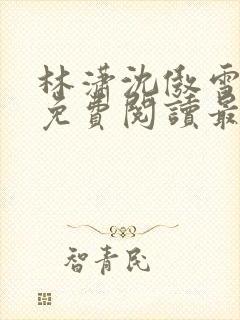 林瀟沈傲雪
免費閱讀最
智青民